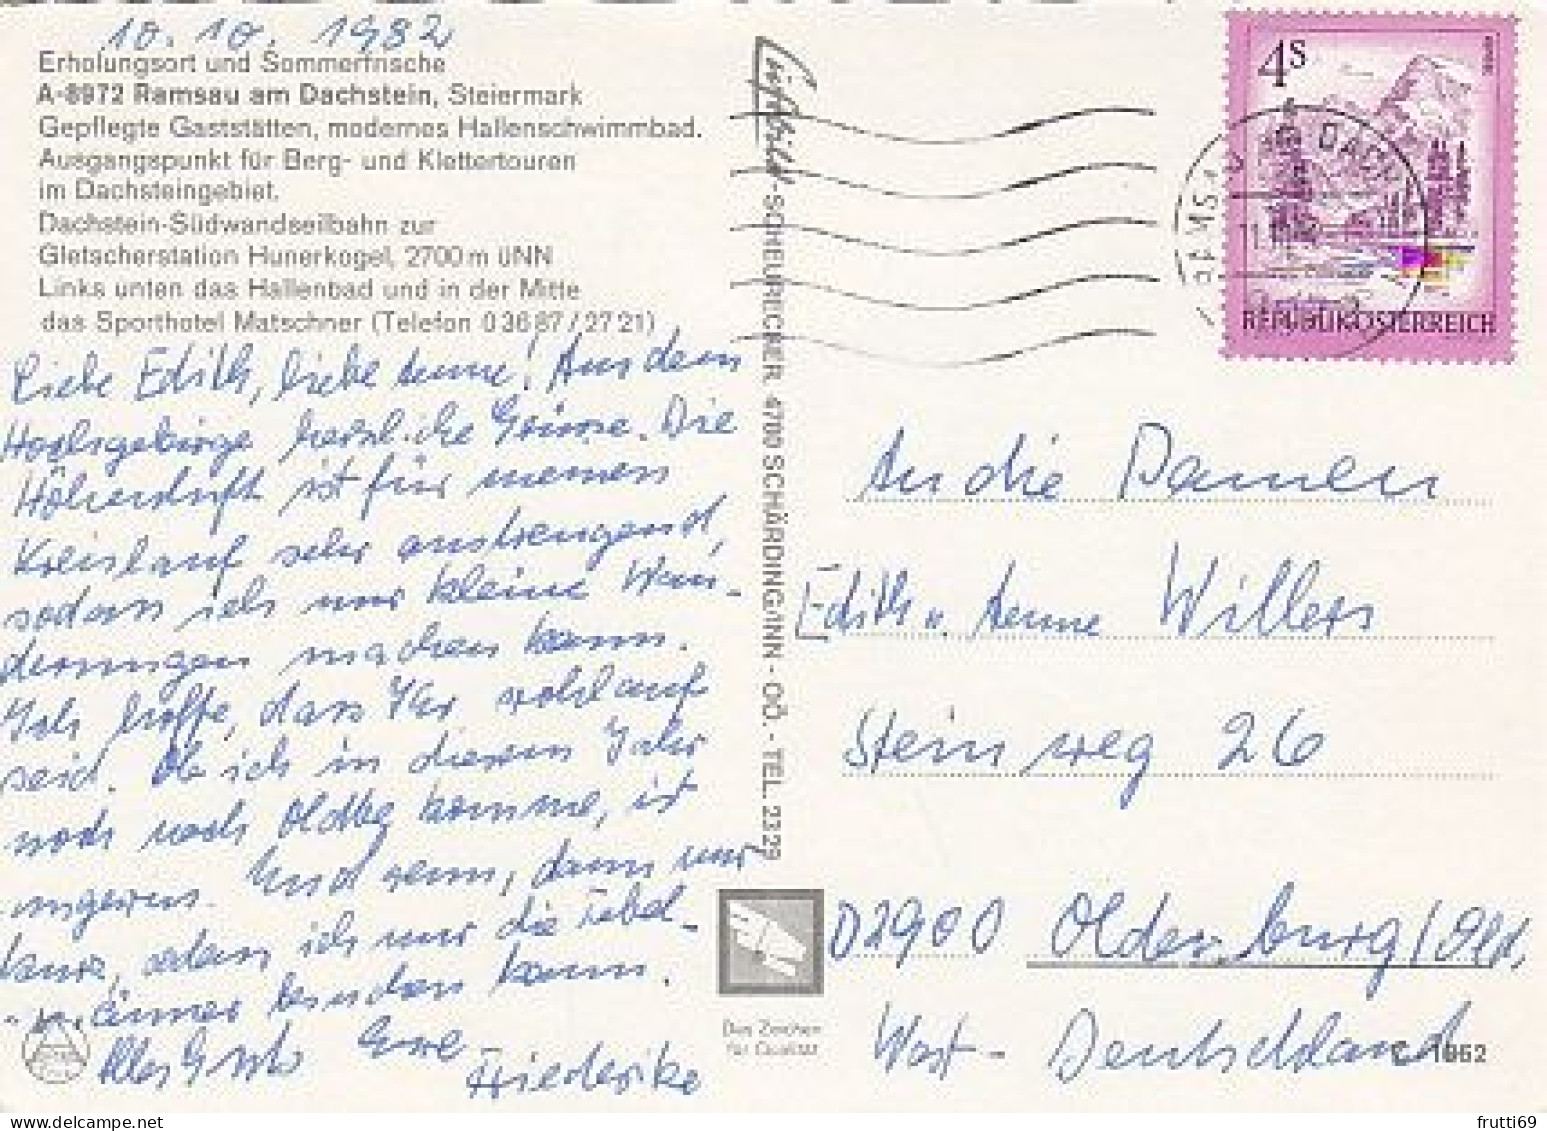 10. 10. 1982
Erholungsort und Sommerfrische
A-8972 Ramsau am Dachstein, Steiermark
Gepflegte Gaststätten, modernes Hallenschwimmbad.
Ausgangspunkt für Berg- und Klettertouren
im Dachsteingebiet.
Dachstein-Südwandseilbahn zur
Gletscherstation Hunerkogel, 2700 m üNN
Links unten das Hallenbad und in der Mitte
das Sporthotel Matschner (Telefon 0 36 87 / 27 21)
Liebe Edith, liebe Änne! Aus dem
Hochgebirge herzliche Grüsse. Die
Höhenluft ist für meinen
Kreislauf sehr anstrengend,
sodass ich nur kleine Wan-
derungen machen kann.
Ich hoffe, dass Ihr wohlauf
seid. Ob ich in diesem Jahr
noch nach Oldbg komme, ist
ungewiss. Und wenn, dann nur
kurz, sodass ich nur die
besuchen kann.
Alles Gute Eure
Friederike
-SCHEURECKER, 4780 SCHÄRDING/INN - OÖ. - TEL. 2329
Das Zeichen
für Qualität
4S
REPUBLIK ÖSTERREICH
RAMSAU AM DACH
An die Damen
Edith u. Änne Willers
Steinweg 26
D 2900 Oldenburg/Old,
West-Deutschland
1952
frutti69